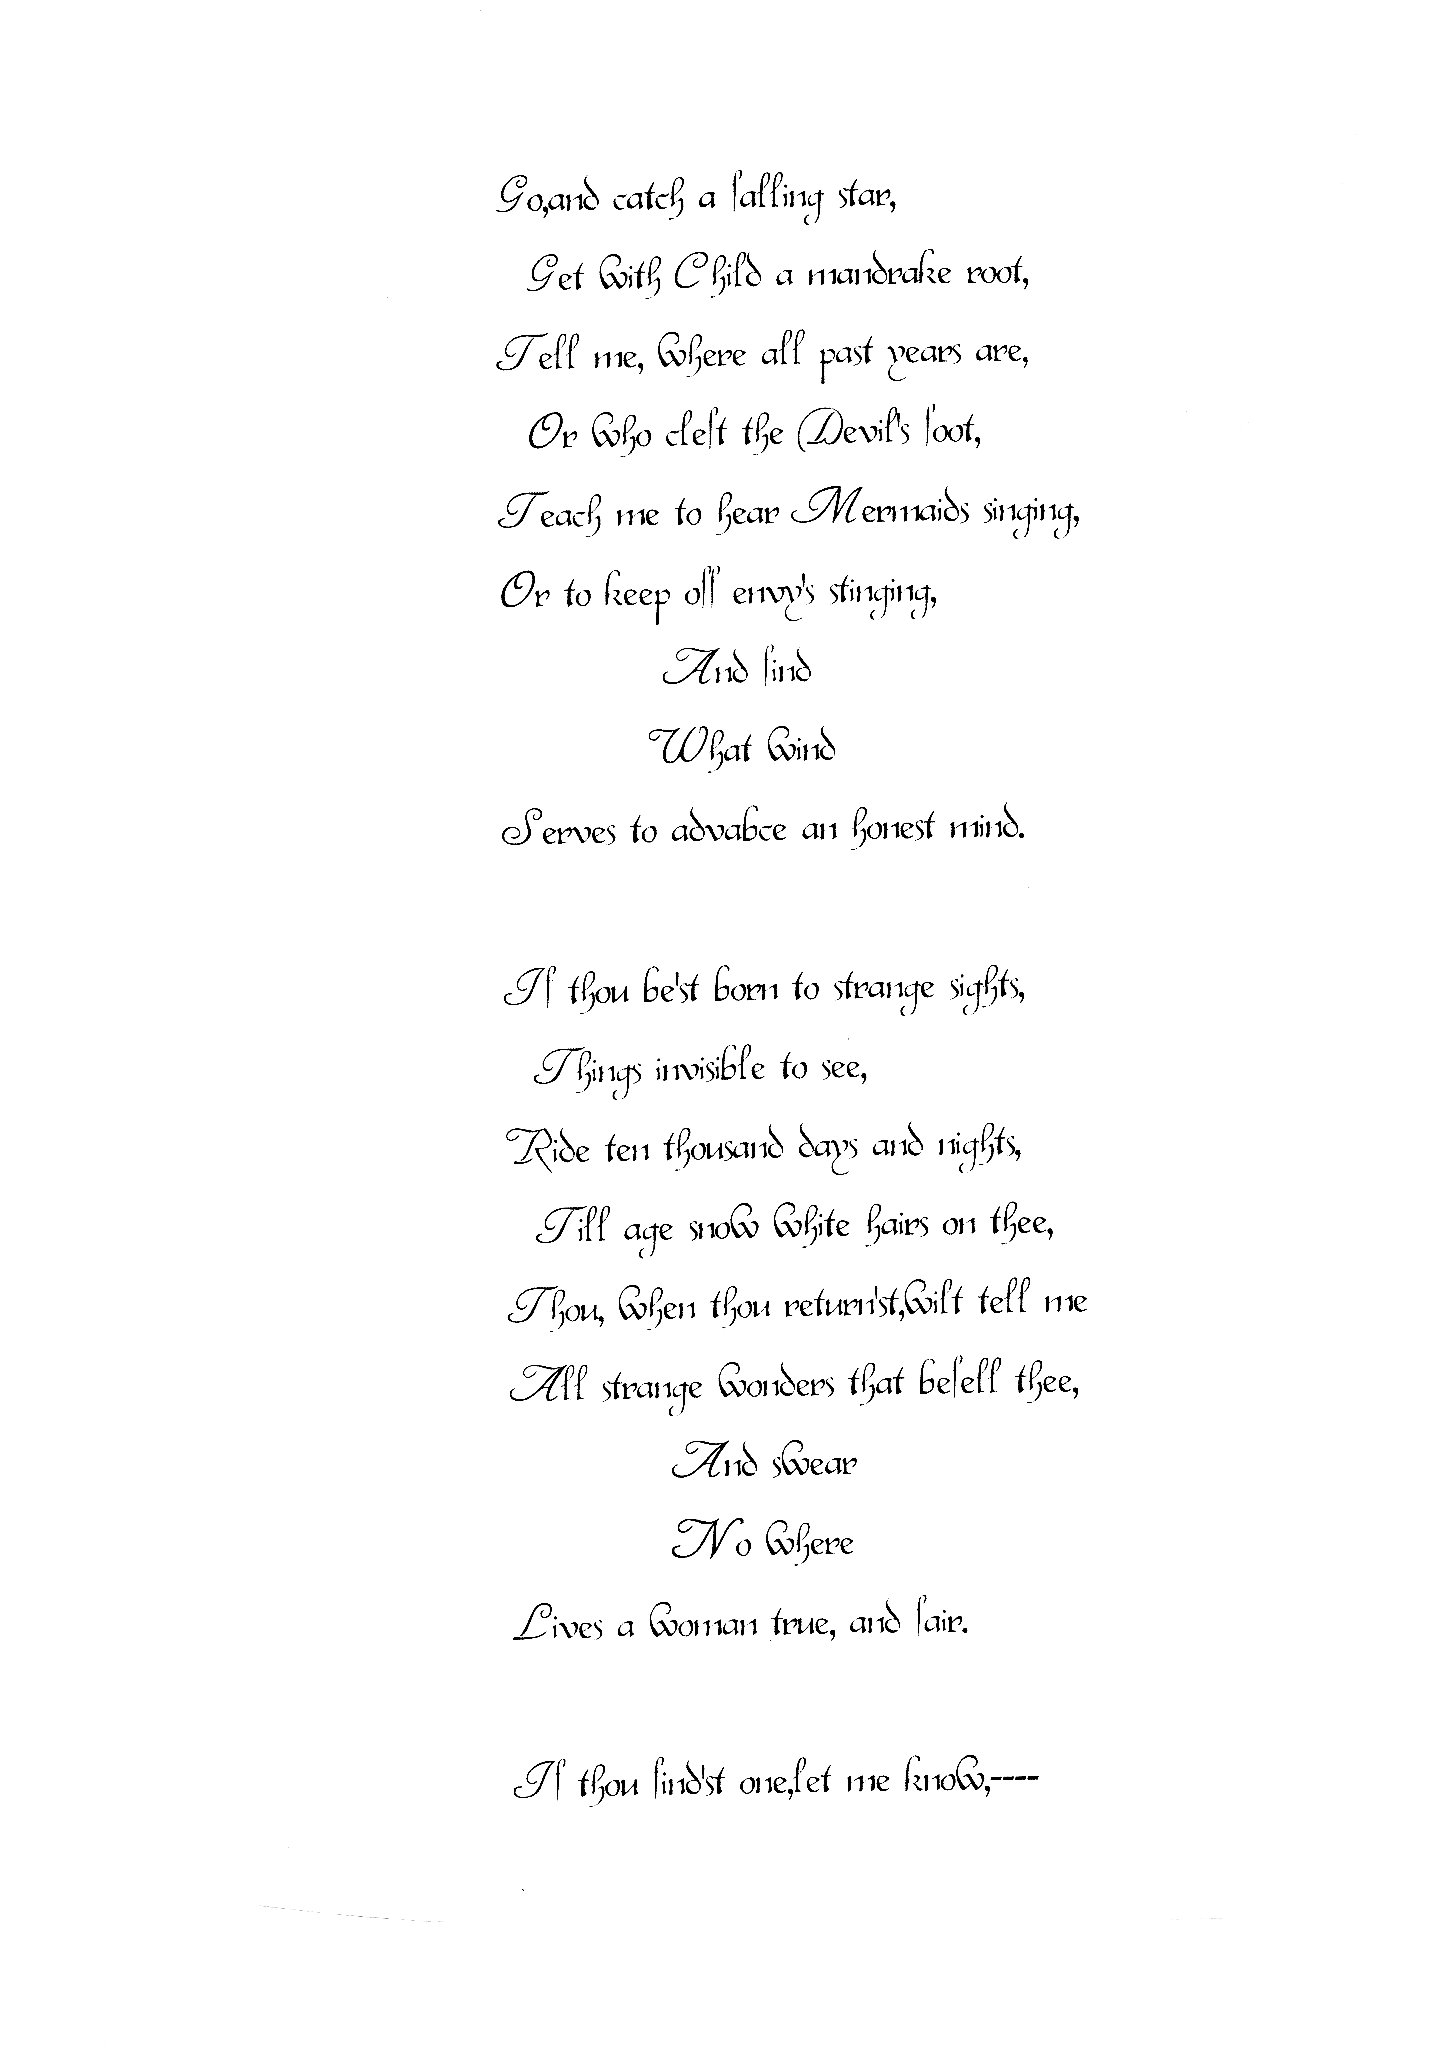 Go,and catch a falling star,
Get with Child a mandrake root,
Tell me, where all past years are,
Or who cleft the Devil's foot,
Teach me to hear Mermaids singing,
Or to keep off envy's stinging,
And find
What wind
Serves to advabce an honest mind.
If thou be'st born to strange sights,
Things invisible to see,
Ride ten thousand days and nights,
Till age snow white hairs on thee,
Thou, when thou return'st,wilt tell me
All strange wonders that befell thee,
And swear
No where
Lives a woman true, and fair.
If thou find'st one,let me know,----